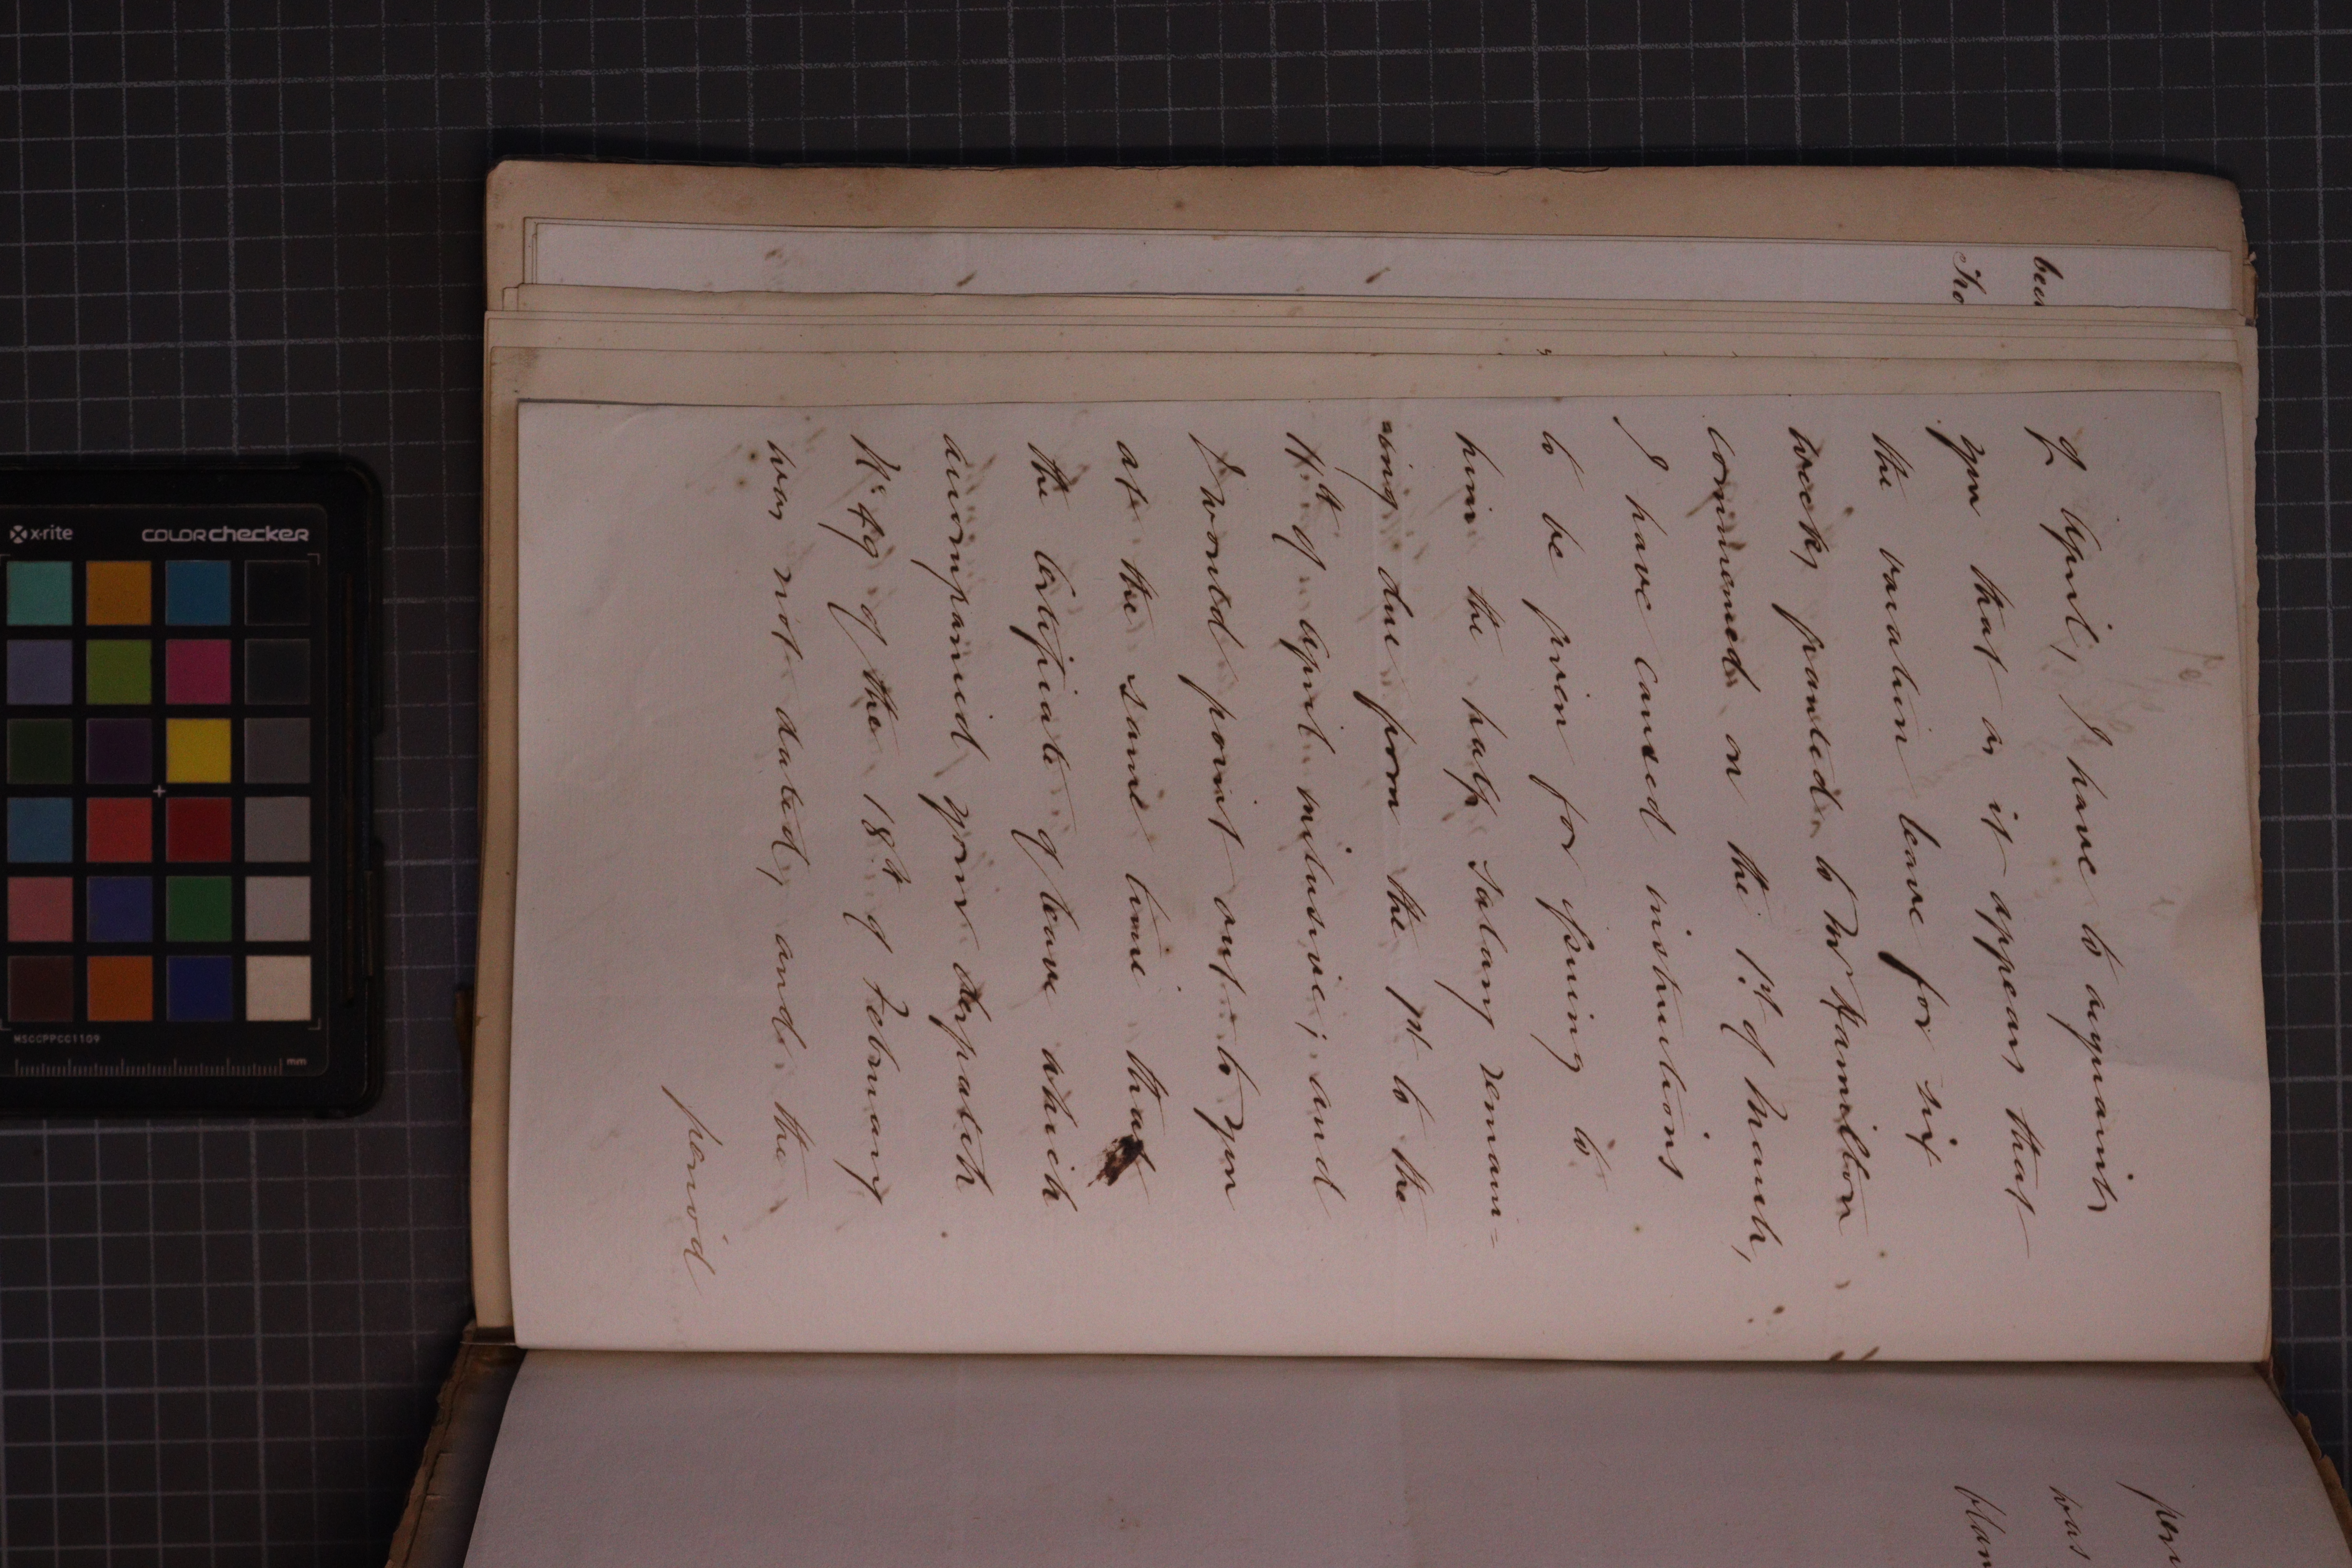 of April, I have to acquaint
you that as it appears that
the vacation leave for six
weeks granted to Mr Hamilton
commenced on the 1st of March,
I have caused instructions
to be given for issuing to
him the half salary remain=
=ing due from the 1st to the
11th of April inclusive; and
I would point out to you
at the same time that
the certificate of leave which
accompanied your despatch
No 49 of the 18th of February
was not dated, and the
period
was
x-rite
colorchecker
MSCCPPCC1109
mm